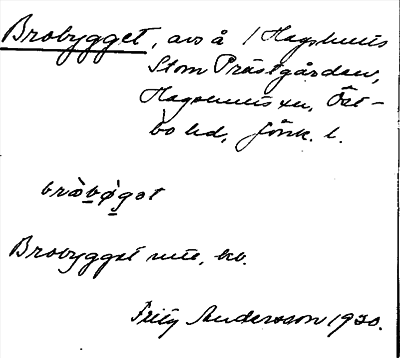 Brobygget, avs å / Hagshults
Stom Prästgården,
Hagshults sn, Öst-
bo hd, Jönk. l.
bræ̀bø̀gət
Brobygget ute, kv.
Fritz Andersson 1930.